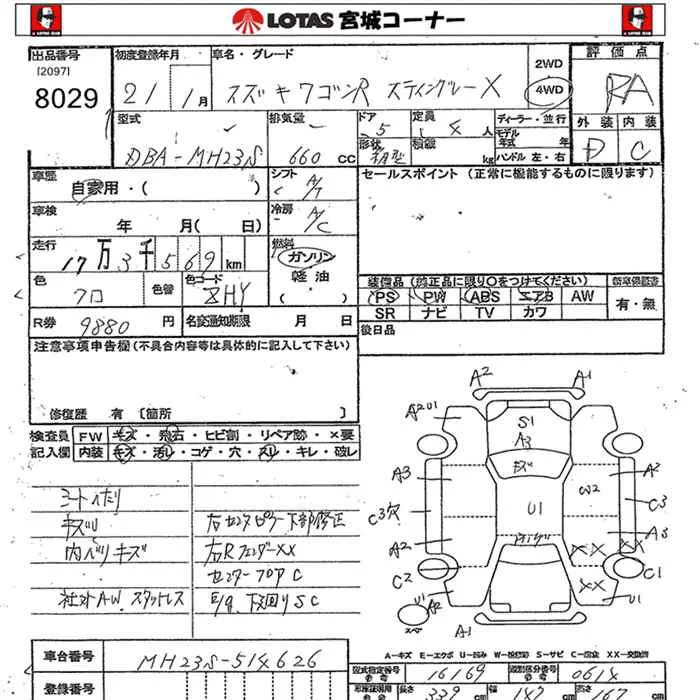 LOTAS 宮城コーナー
出品番号 初度登録年月 車名・グレード 2WD 評価点
[2097] 8029 21 1月 スズキ ワゴンR スティングレーX 4WD RA
型式 排気量 ドア 定員 ディーラー・並行 外装 内装
DBA-MH23S 660 CC 5 4人 モデル年式 年 D C
形状 積載 kg ハンドル 左・右
車歴 自家用・( ) シフト A/T セールスポイント (正常に機能するものに限ります)
車検 年 月( 日) 冷房 A/C
走行 17万3千569km 燃料 ガソリン
軽油
( ・ )
色 クロ 色替 色コード ZHY 装備品 (純正品に限り○をつけてください) 新車保証書
PS PW ABS エアB AW 有・無
R券 9880円 名変通知期限 月 日 SR ナビ TV カワ
後日品
注意事項申告欄 (不具合内容等は具体的に記入して下さい)
修復歴 有 [箇所 ]
検査員 FW キズ・飛石・ヒビ割・リペア跡・×要
記入欄 内装 キズ・汚れ・コゲ・穴・スレ・キレ・破レ
シートヘたり
キズU 右センタピラー下部修正
内ハリキズ 右Rフェンダー××
センターフロア C
社外AW スタッドレス E/g 下回りSC
A2 A1
A2U1 S1
A3
キズ
A3 A2
W2
C3穴 U1 C3
A2 A3
×× ××
C2 C1
××
U1 A2 U1
スペア A1
A-キズ E-エクボ U-凹み W-波修跡 S-サビ C-腐食 XX-交換跡
車台番号 MH23S-514626
型式指定番号 16169 類別区分番号 0614
登録番号 長さ 339 cm 幅 147 cm 高さ 167 cm